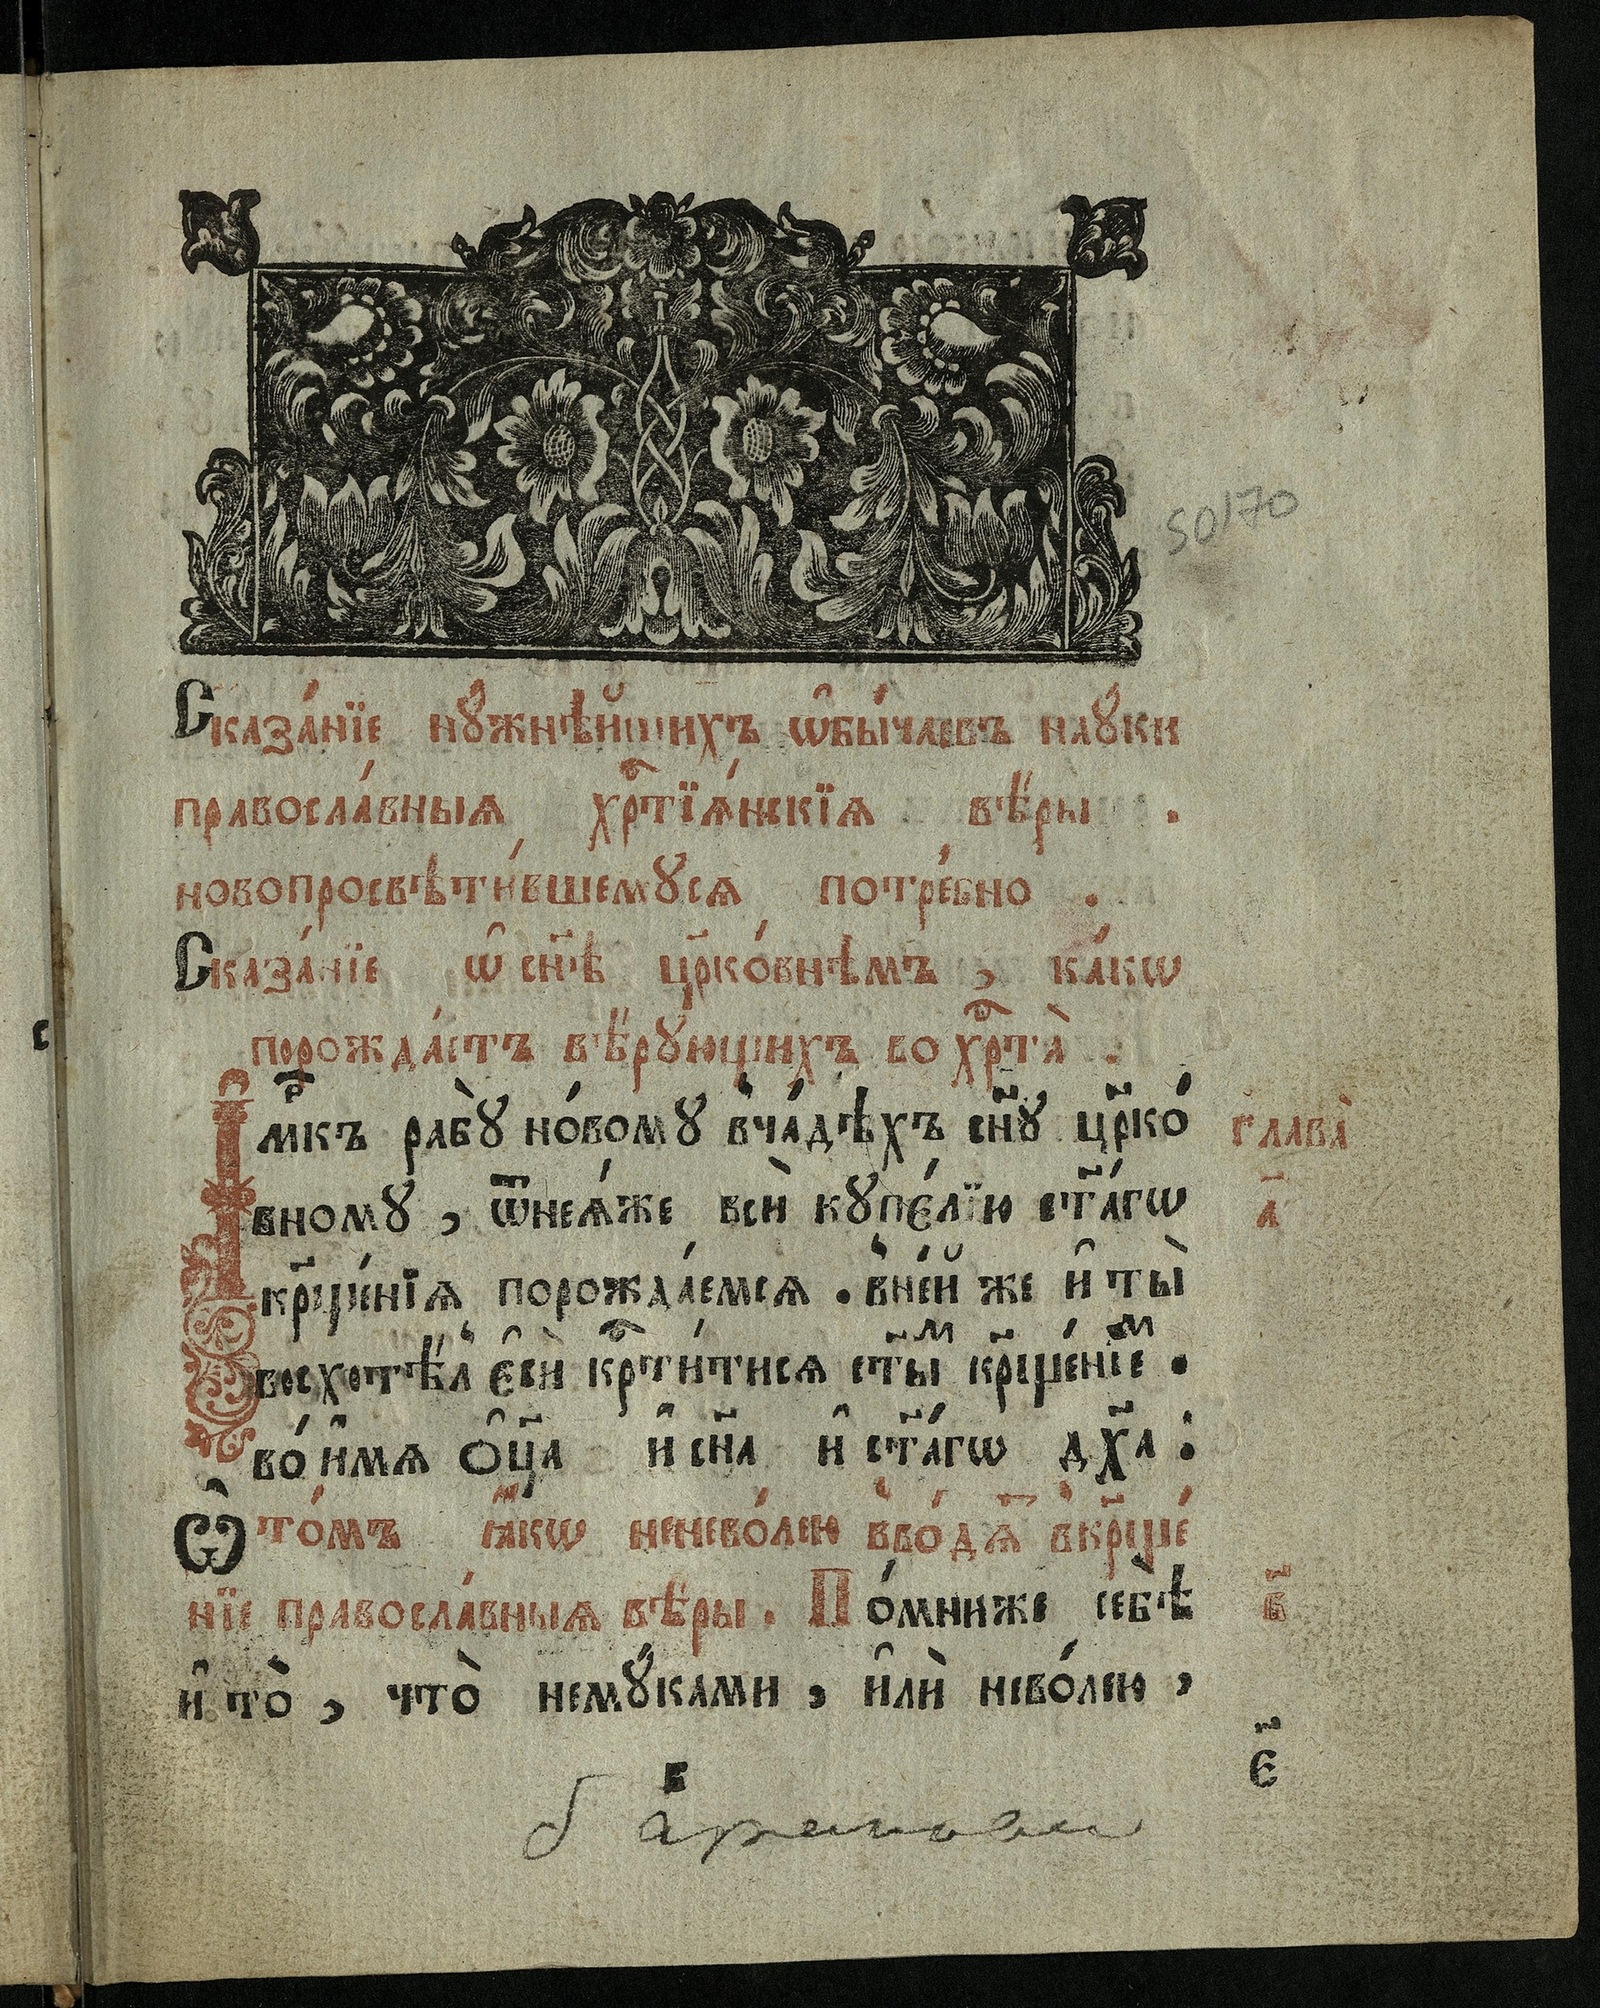 50170
Сказа́нїе нꙋ́жнѣйшихъ ѡ҆бы́чаевъ наꙋ́ки
правосла́вныѧ хрⷭ҇тїѧ́нскїѧ вѣ́ры .
новопросвѣти́вшемꙋсѧ потре́бно .
Сказа́нїе ѡ҆ сн҃ѣ цр҃ко́внѣмъ , ка́кѡ
порожда́етъ вѣ́рꙋющихъ во хрⷭ҇та̀ .
І҆́мⷬ҇къ рабꙋ̀ но́вомꙋ вча́дѣхъ сн҃ꙋ цр҃ко́
глава̀
вномꙋ , ѿнеѧ́же всѝ кꙋпе́лїю ст҃а́гѡ
а҃
кр҃ще́нїѧ порожда́емсѧ . вне́й же и҆ ты̀
восхотѣ́л є҆сѝ крⷭ҇ти́тисѧ ст҃ыⷨ кр҃ще́нїеⷨ .
во́ и҆мѧ ѻ҆ц҃а и҆ сн҃а и҆ ст҃а́гѡ дх҃а :
Ѡ҆ то́мъ ꙗ҆́кѡ неневѡ́лею вво́дѧⷮ вкр҃ще́
нїе правосла́вныѧ вѣ́ры . По́мниже себѣ̀
в҃
и҆ то̀ , что̀ немꙋ́ками , и҆лѝ нево́лею ,
є҃
в